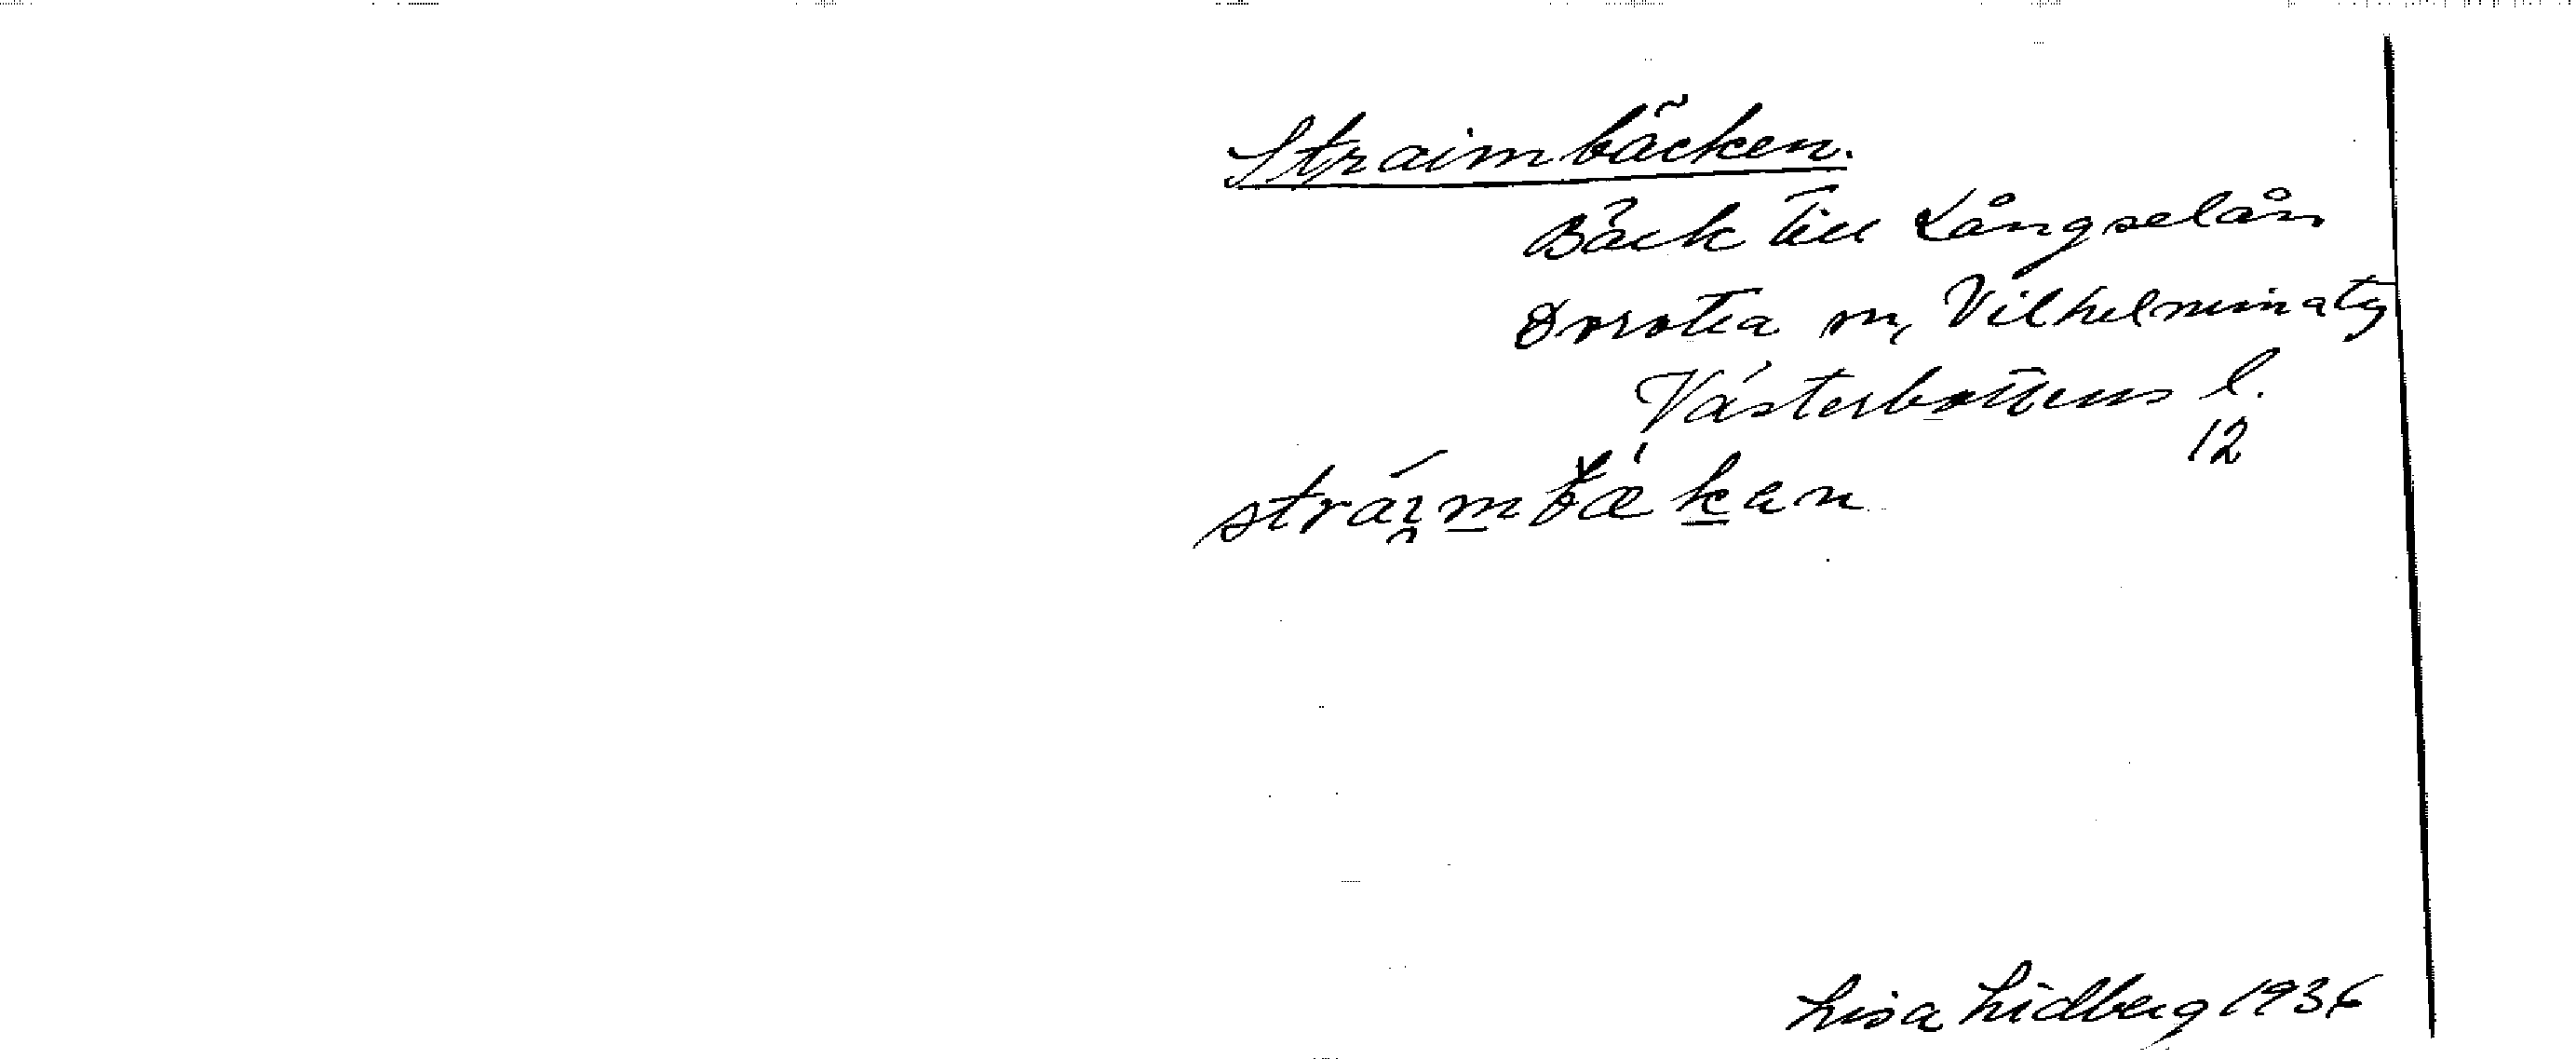 Straimbäcken.
Bäck till Långselån
Dorotea sn, Vilhelmina tg
Västerbottens l.
12
Lisa Lidberg 1936